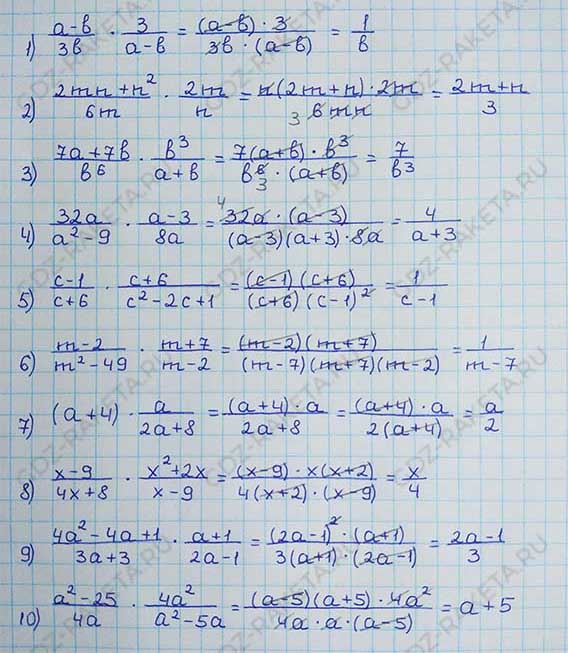 1) (a-b)/(3b) · 3/(a-b) = ((a-b) · 3)/(3b · (a-b)) = 1/b
2) (2mn+n²)/(6m) · (2m)/n = (n(2m+n) · 2m)/(3 6mn) = (2m+n)/3
3) (7a+7b)/b⁶ · b³/(a+b) = (7(a+b) · b³)/(b⁶ 3 · (a+b)) = 7/b³
4) (32a)/(a²-9) · (a-3)/(8a) = (4 32a · (a-3))/((a-3)(a+3) · 8a) = 4/(a+3)
5) (c-1)/(c+6) · (c+6)/(c²-2c+1) = ((c-1)(c+6))/((c+6)(c-1)²) = 1/(c-1)
6) (m-2)/(m²-49) · (m+7)/(m-2) = ((m-2)(m+7))/((m-7)(m+7)(m-2)) = 1/(m-7)
7) (a+4) · a/(2a+8) = ((a+4) · a)/(2a+8) = ((a+4) · a)/(2(a+4)) = a/2
8) (x-9)/(4x+8) · (x²+2x)/(x-9) = ((x-9) · x(x+2))/(4(x+2) · (x-9)) = x/4
9) (4a²-4a+1)/(3a+3) · (a+1)/(2a-1) = ((2a-1)² · (a+1))/(3(a+1) · (2a-1)) = (2a-1)/3
10) (a²-25)/(4a) · (4a²)/(a²-5a) = ((a-5)(a+5) · 4a²)/(4a · a · (a-5)) = a+5
GDZ-RAKETA.RU